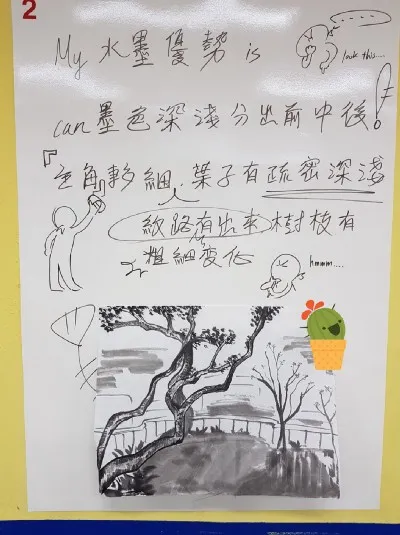 2
My 水墨優勢 is
look this...
can 墨色深淺分出前中後!
『主角較細, 葉子有疏密深淺
紋路有出來 樹枝有
粗細變化
hmmm....